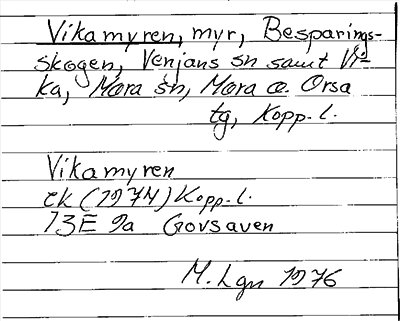 Vikamyren, myr, Besparings-
skogen, Venjans sn samt Vi-
ka, Mora sn, Mora o. Orsa
tg, Kopp. l.
Vikamyren
ek (1974) Kopp. l.
13E 9a Govsaven
M. Lgn 1976